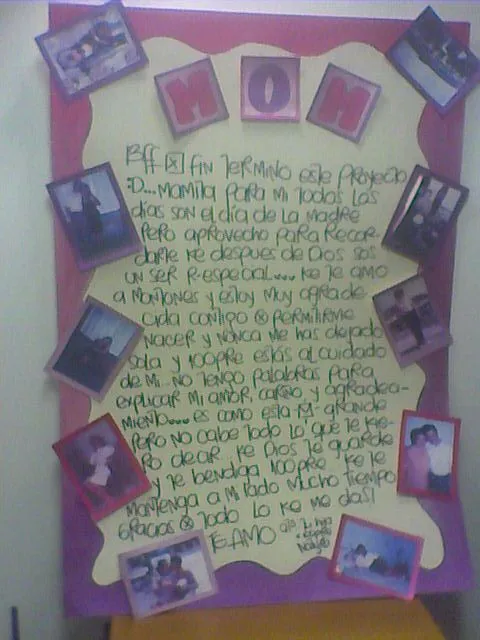 MOM
Bff ⊠ fin termino este proyecto
:D... mamita para mi todos los
días son el día de la madre
pero aprovecho para recor-
darte ke despues de Dios sos
un ser r-especial.... ke te amo
a montones y estoy muy agrade
cida contigo ⊗ permitirme
nacer y nunca me has dejado
sola y 100pre estás al cuidado
de mi.. no tengo palabras para
explicar mi amor, cariño, y agradeci-
miento.... es como esta grande
pero no cabe todo lo que te kie-
ro decir.. ke Dios te guarde
y te bendiga 100pre ke te
mantenga a mi lado mucho tiempo
Gracias ⊗ todo lo ke me das!
Te AMO